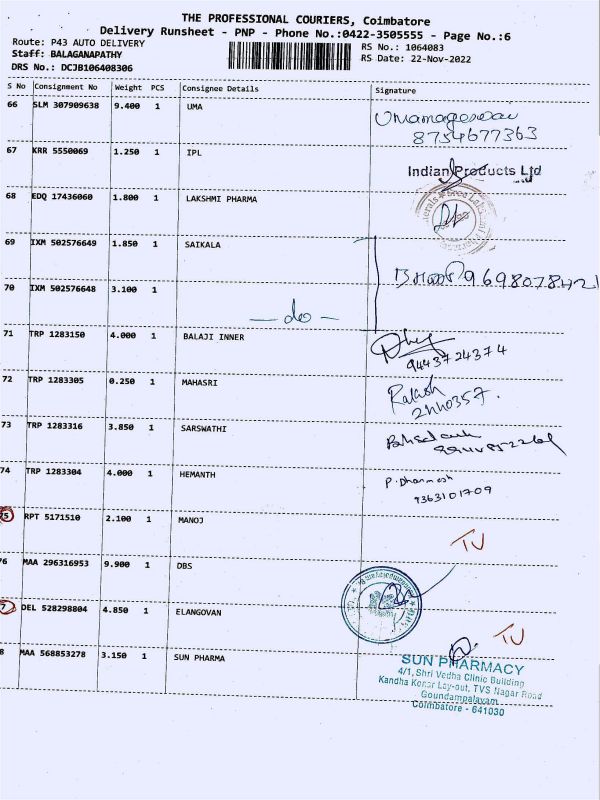 THE PROFESSIONAL COURIERS, Coimbatore
Delivery Runsheet - PNP - Phone No.:0422-3505555 - Page No.:6
Route: P43 AUTO DELIVERY
RS No.: 1064083
Staff: BALAGANAPATHY
RS Date: 22-Nov-2022
DRS No.: DCJB106408306
S No Consignment No Weight PCS Consignee Details Signature
66 SLM 307909638 9.400 1 UMA
Umamageswari
8754677363
67 KRR 5550069 1.250 1 IPL
Indian Products Ltd
68 EDQ 17436060 1.800 1 LAKSHMI PHARMA
69 IXM 502576649 1.850 1 SAIKALA
9698078421
70 IXM 502576648 3.100 1
- do -
71 TRP 1283150 4.000 1 BALAJI INNER
9443724374
72 TRP 1283305 0.250 1 MAHASRI
Rakesh
2440357.
73 TRP 1283316 3.850 1 SARSWATHI
74 TRP 1283304 4.000 1 HEMANTH
P. Dharmesh
9363101709
75 RPT 5171510 2.100 1 MANOJ
TU
76 MAA 296316953 9.900 1 DBS
7 DEL 528298804 4.850 1 ELANGOVAN
TU
8 MAA 568853278 3.150 1 SUN PHARMA
SUN PHARMACY
4/1, Shri Vedha Clinic Building
Kandha Konar Lay-out, TVS Nagar Road
Goundampalayam
Coimbatore - 641030